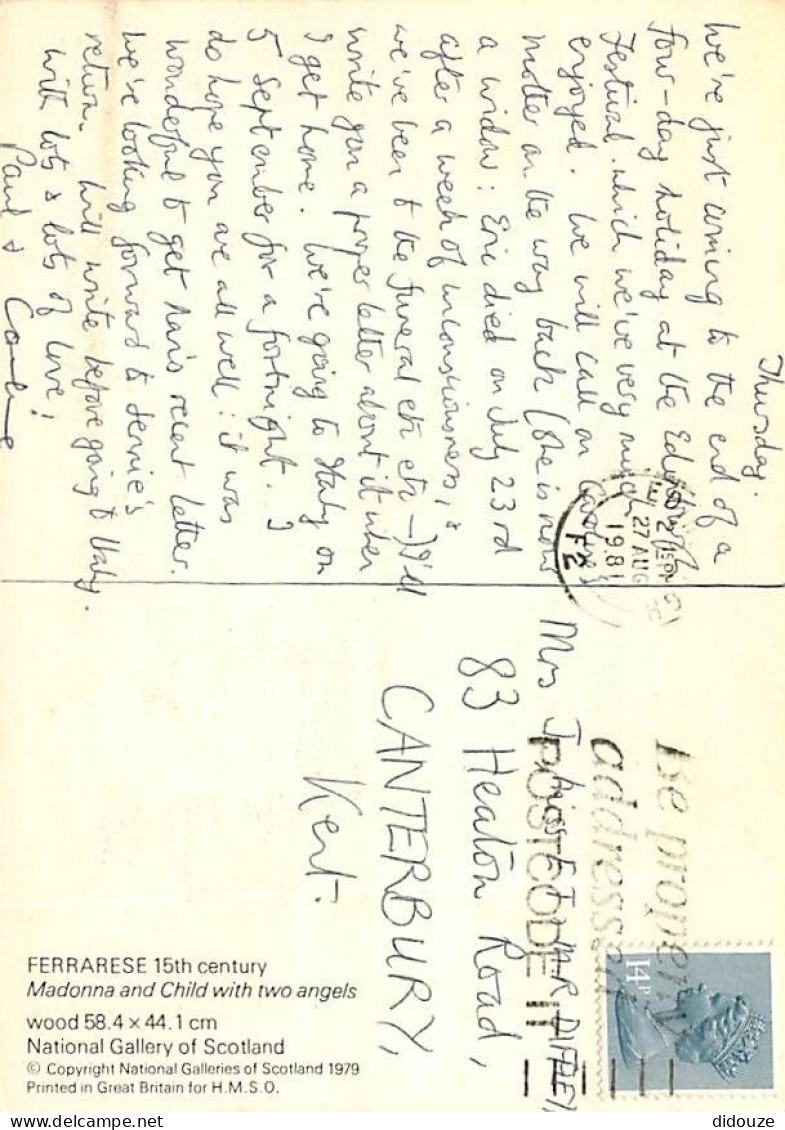 Thursday.
We're just coming to the end of a
four-day holiday at the Edinburgh
Festival which we've very much
enjoyed. We will call on Caroline's
mother on the way back (she is now
a widow: Eric died on July 23rd
after a week of unconsciousness, &
we've been to the funeral etc etc —) I'll
write you a proper letter about it when
I get home. We're going to Italy on
5 September for a fortnight. I
do hope you are all well: it was
wonderful to get Nan's recent letter.
We're looking forward to Jennie's
return. Will write before going to Italy.
With lots & lots of love,
Paul &
Mrs
83 Heaton Road,
CANTERBURY,
Kent.
2 15PM
27 AUG
1981
E2
Be properly
addressed
POSTCODE IT
14P
FERRARESE 15th century
Madonna and Child with two angels
wood 58.4 x 44.1 cm
National Gallery of Scotland
© Copyright National Galleries of Scotland 1979
Printed in Great Britain for H.M.S.O.
didouze